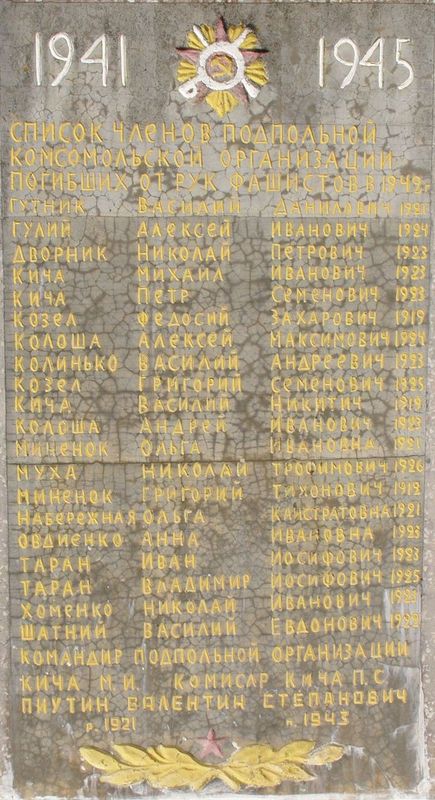 1941 1945
СПИСОК ЧЛЕНОВ ПОДПОЛЬНОЙ
КОМСОМОЛЬСКОЙ ОРГАНИЗАЦИИ
ПОГИБШИХ ОТ РУК ФАШИСТОВ В 1942 г
ГУТНИК ВАСИЛИЙ ДАНИЛОВИЧ
ГУЛИЙ АЛЕКСЕЙ ИВАНОВИЧ 1924
ДВОРНИК НИКОЛАЙ ПЕТРОВИЧ 1923
КИЧА МИХАИЛ ИВАНОВИЧ 1923
КИЧА ПЕТР СЕМЕНОВИЧ 1923
КОЗЕЛ ФЕДОСИЙ ЗАХАРОВИЧ 1919
КОЛОША АЛЕКСЕЙ МАКСИМОВИЧ 1924
КОЛИНЬКО ВАСИЛИЙ АНДРЕЕВИЧ 1923
КОЗЕЛ ГРИГОРИЙ СЕМЕНОВИЧ 1925
КИЧА ВАСИЛИЙ НИКИТИЧ 1919
КОЛОША АНДРЕЙ ИВАНОВИЧ 1923
МИНЕНОК ОЛЬГА ИВАНОВНА 1921
МУХА НИКОЛАЙ ТРОФИМОВИЧ 1926
МИНЕНОК ГРИГОРИЙ ТИХОНОВИЧ 1912
НАБЕРЕЖНАЯ ОЛЬГА КАЛИСТРАТОВНА 1921
ОВДИЕНКО АННА ИВАНОВНА 1923
ТАРАН ИВАН ИОСИФОВИЧ 1923
ТАРАН ВЛАДИМИР ИОСИФОВИЧ 1925
ХОМЕНКО НИКОЛАЙ ИВАНОВИЧ 1923
ШАТНИЙ ВАСИЛИЙ ЕВДОНОВИЧ 1922
КОМАНДИР ПОДПОЛЬНОЙ ОРГАНИЗАЦИИ
КИЧА М.И. КОМИСАР КИЧА П.С
ПИУТИН ВАЛЕНТИН СТЕПАНОВИЧ
р. 1921 п. 1943